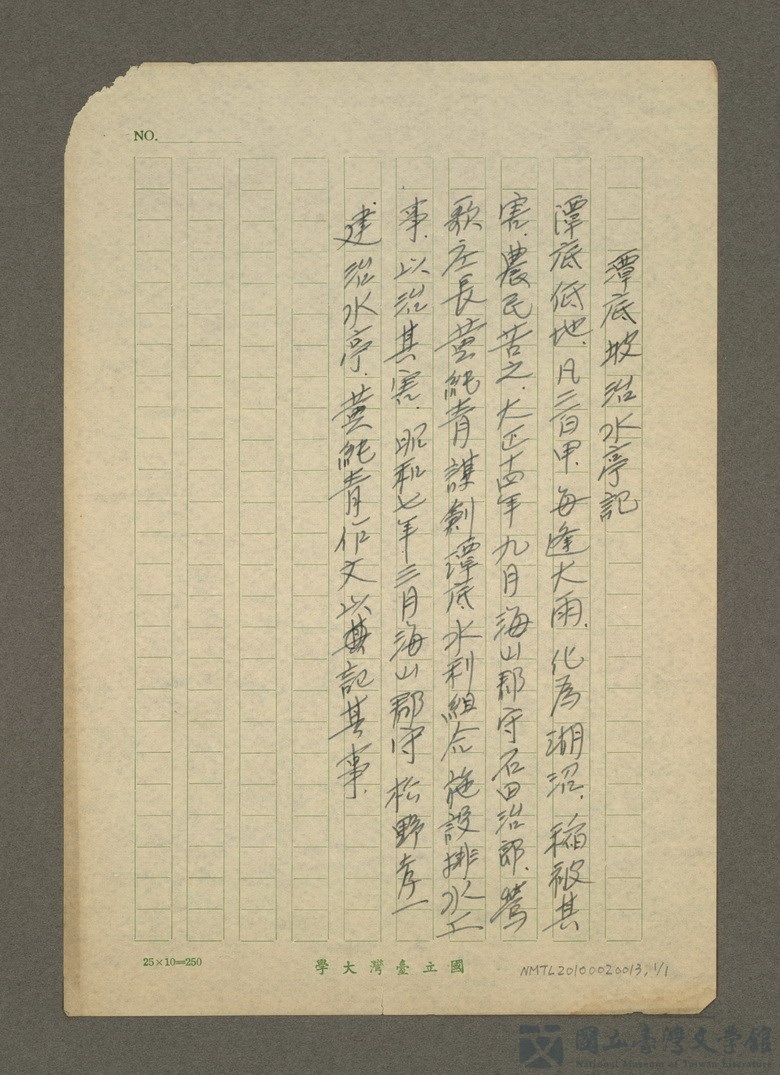 NO.
潭底坡治水亭記
潭底低地、凡三百甲、每逢大雨、化為湖沼、稲被其
害、農民苦之、大正十四年九月海山郡守石田治郎、鶯
歌庄長黄純青謀創潭底水利組合施設排水工
事、以治其害、昭和七年三月海山郡守松野孝一
建治水亭、黄純青作文以記其事、
25×10=250
學大灣臺立國
NMTL20100020013,1/1
國立臺灣文學館
National Museum of Taiwan Literature